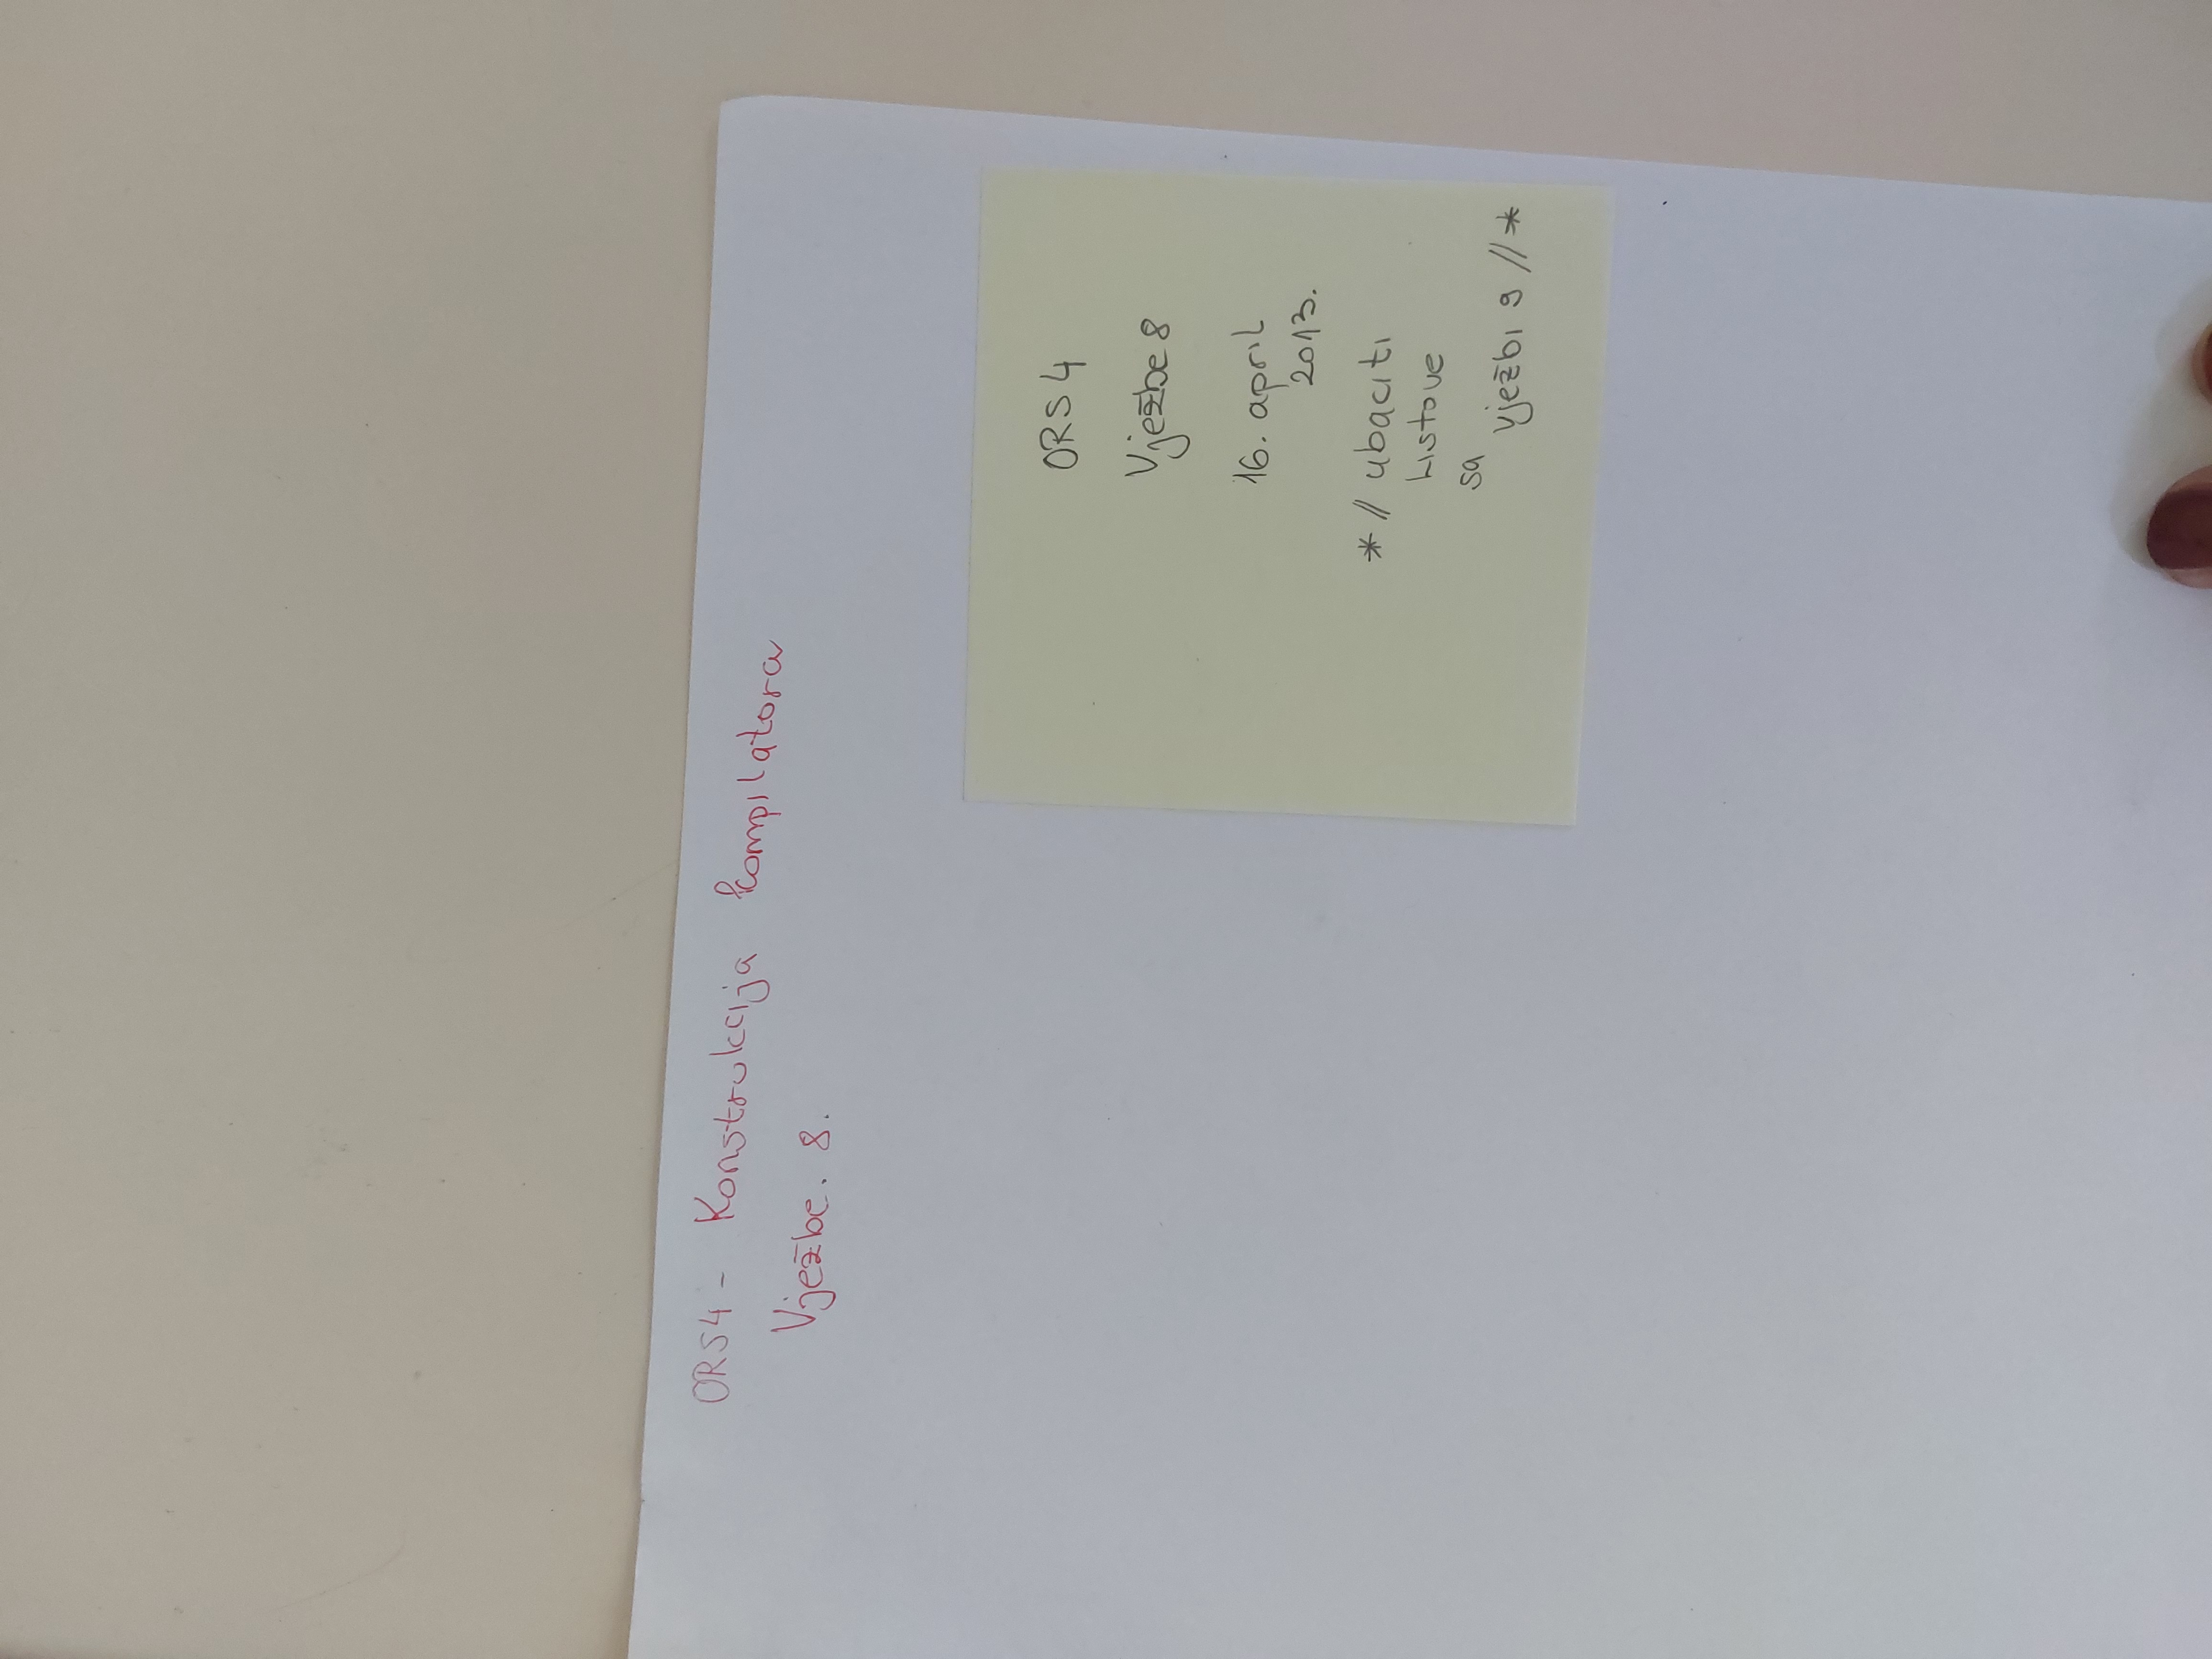 ORS4 - Konstrukcija kompilatora
Vježbe. 8.
ORS 4
Vježbe 8
16. april
2013.
* // ubaciti
Listove
sa
vježbi 9 // *